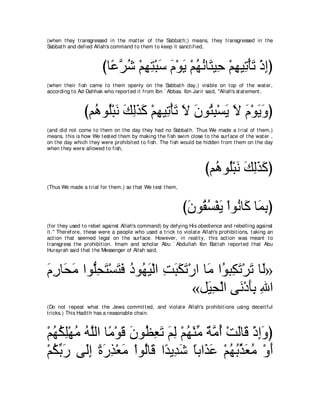 (when they transgressed in the matter of the Sabbath;) means, they transgressed in the
Sabbath and defied Allah's command to them to keep it sanctified,
(إِذْ تَأْتِيهِمْ حِيتَانُهُمْ يَوْمَ سَبْتِهِمْ شُرَّعًا)
(when their fish came to them openly on the Sabbath day,) visible on top of the water,
according to Ad-Dahhak who reported it from Ibn `Abbas. Ibn Jarir said, "Allah's statement,
(وَيَوْمَ لَا يَسْبِتُونَ لَا تَأْتِيهِمْ كَذَلِكَ نَبْلُوهُم)
(and did not come to them on the day they had no Sabbath. Thus We made a trial of them,)
means, this is how We tested them by making the fish swim close to the surface of the water,
on the day which they were prohibited to fish. The fish would be hidden from them on the day
when they were allowed to fish,
(كَذَلِكَ نَبْلُوهُم)
(Thus We made a trial for them,) so that We test them,
(بِمَا كَانُوا يَفْسُقُونَ)
(for they used to rebel against Allah's command) by defying His obedience and rebelling against
it." Therefore, these were a people who used a trick to violate Allah's prohibitions, taking an
action that seemed legal on the surface. However, in reality, this action was meant to
transgress the prohibition. Imam and scholar Abu `Abdullah Ibn Battah reported that Abu
Hurayrah said that the Messenger of Allah said,
«لَا تَرْتَكِبُوا مَا ارْتَكَبَتِ الْيَهُودُ فَتَسْتَحِلُّوا مَحَارِمَ
اللهِ بِأَدْنَى الْحِيَلِ»
(Do not repeat what the Jews committed, and violate Allah's prohibitions using deceitful
tricks.) This Hadith has a reasonable chain.
(وَإِذْ قَالَتْ أُمَّةٌ مِّنْهُمْ لِمَ تَعِظُونَ قَوْمًا اللَّهُ مُهْلِكُهُمْ
أَوْ مُعَذِّبُهُمْ عَذَابًا شَدِيدًا قَالُوا مَعْذِرَةً إِلَى رَبِّكُمْ